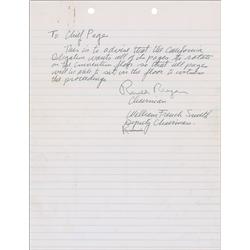 To Chief Page
This is to advise that the California
Delegation wants all of its pages to rotate
on the convention floor so that all pages
will be able to sit on the floor to witness
the proceedings.
Ronald Reagan
Chairman
William French Smith
Deputy Chairman